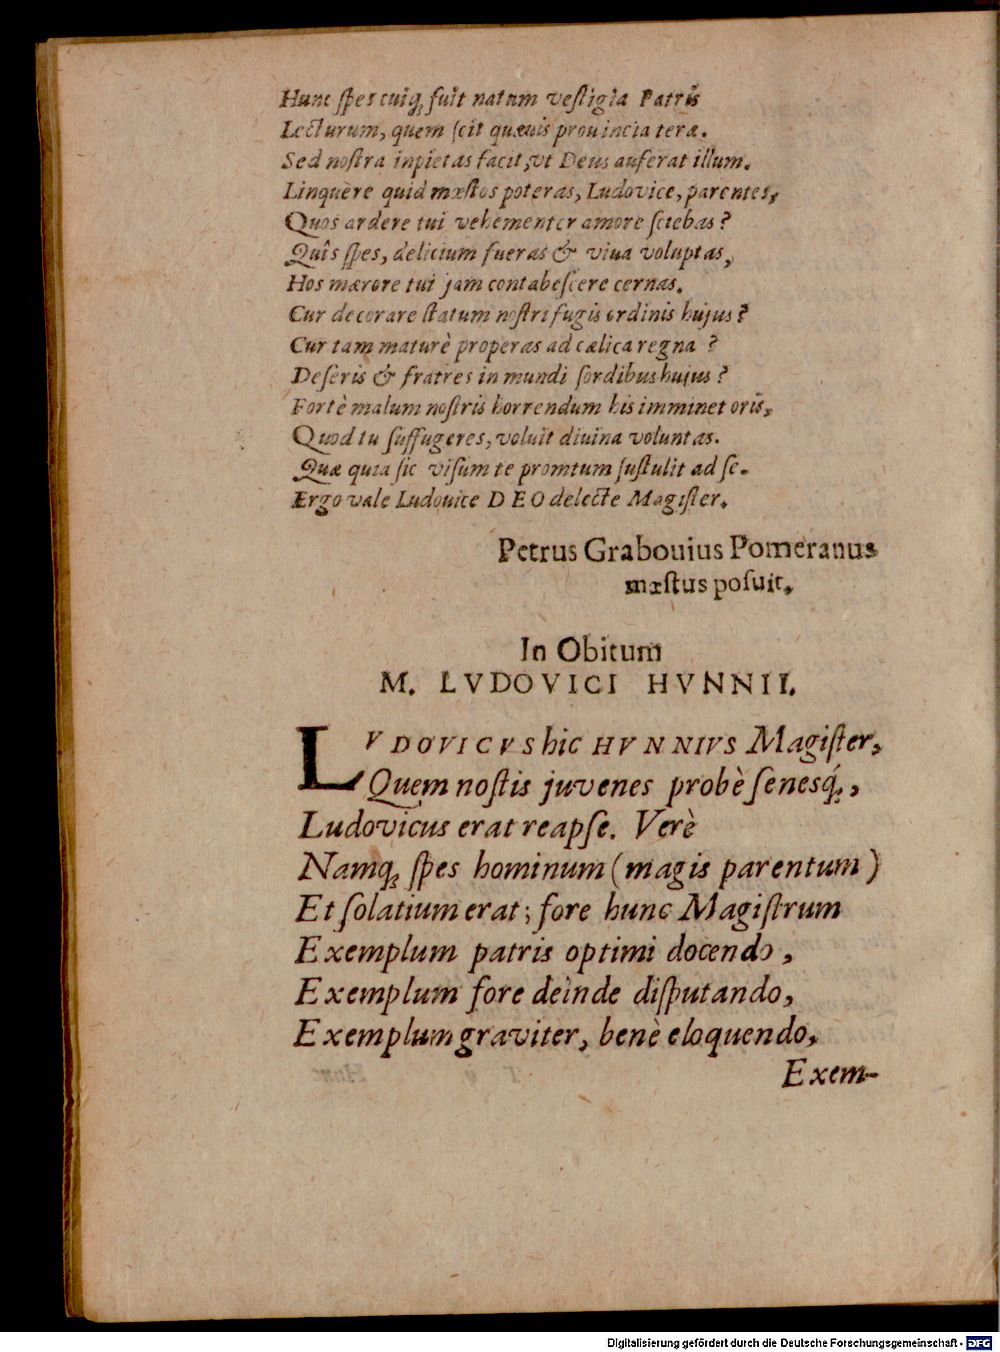 Hunc ſpes cuiq; fuit natum veſtigia Patris
Lecturum, quem ſcit quævis prouincia teræ.
Sed noſtra inpietas facit, vt Deus auferat illum.
Linquere quid mæſtos poteras, Ludovice, parentes,
Quos ardere tui vehementer amore ſciebas?
Quîs ſpes, delicium fueras & viua voluptas,
Hos mærore tui jam contabeſcere cernas.
Cur decorare ſtatum noſtri fugis ordinis hujus?
Cur tam maturè properas ad cælica regna ?
Deſeris & fratres in mundi ſordibus hujus?
Fortè malum noſtris horrendum his imminet oris,
Quod tu ſuffugeres, voluit diuina voluntas.
Quæ quia ſic viſum te promtum ſuſtulit ad ſe.
Ergo vale Ludouice DEO delecte Magiſter.
Petrus Grabouius Pomeranus
mæſtus poſuit.
In Obitum
M. LVDOVICI HVNNII.
LVDOVICVS hic HVNNIVS Magiſter,
Quem noſtis juvenes probè ſenesq́;,
Ludovicus erat reapſe. Verè
Namq; ſpes hominum (magis parentum)
Et ſolatium erat; fore hunc Magiſtrum
Exemplum patris optimi docendo,
Exemplum fore deinde diſputando,
Exemplum graviter, benè eloquendo,
Exem-
Digitalisierung gefördert durch die Deutsche Forschungsgemeinschaft - DFG